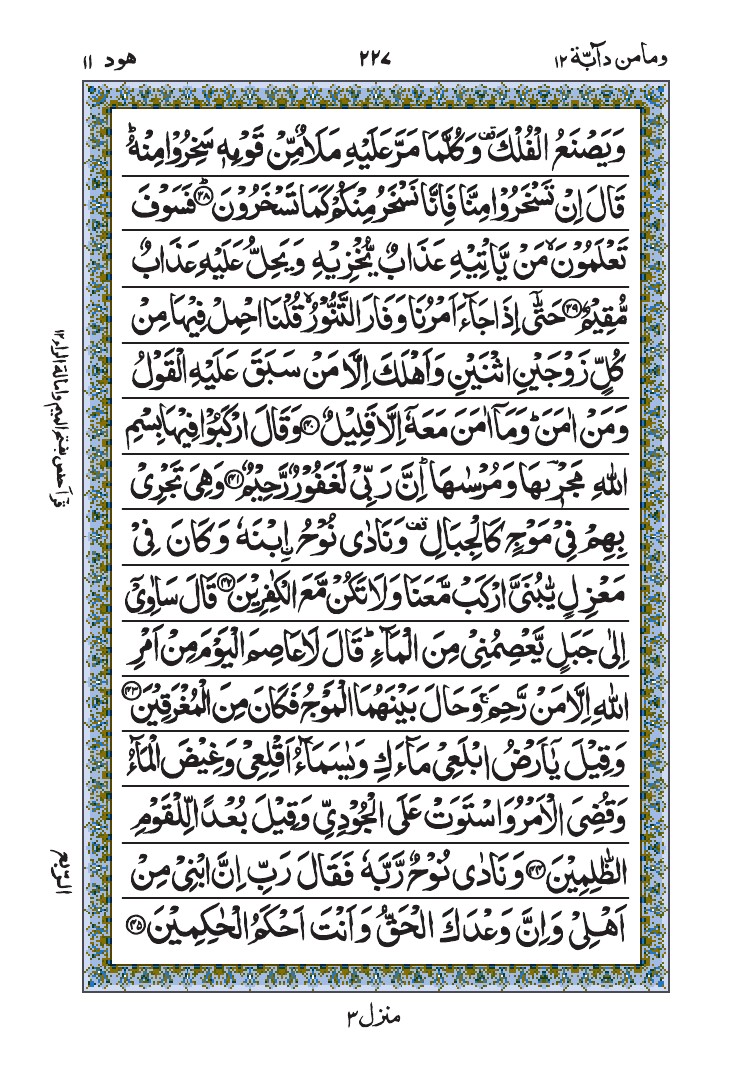 وما من دآبّة ١٢
٢٢٧
هود ١١
وَيَصْنَعُ الْفُلْكَ ۣ وَكُلَّمَا مَرَّ عَلَيْهِ مَلَاٌ مِّنْ قَوْمِهٖ سَخِرُوْا مِنْهُ ؕ
قَالَ اِنْ تَسْخَرُوْا مِنَّا فَاِنَّا نَسْخَرُ مِنْكُمْ كَمَا تَسْخَرُوْنَ ؕ﴿۳۸﴾ فَسَوْفَ
تَعْلَمُوْنَ ۙ مَنْ يَّاْتِيْهِ عَذَابٌ يُّخْزِيْهِ وَيَحِلُّ عَلَيْهِ عَذَابٌ
مُّقِيْمٌ ﴿۳۹﴾ حَتّٰۤى اِذَا جَآءَ اَمْرُنَا وَفَارَ التَّنُّوْرُ ۙ قُلْنَا احْمِلْ فِيْهَا مِنْ
كُلٍّ زَوْجَيْنِ اثْنَيْنِ وَاَهْلَكَ اِلَّا مَنْ سَبَقَ عَلَيْهِ الْقَوْلُ
وَمَنْ اٰمَنَ ؕ وَمَاۤ اٰمَنَ مَعَهٗۤ اِلَّا قَلِيْلٌ ﴿۴۰﴾ وَقَالَ ارْكَبُوْا فِيْهَا بِسْمِ
اللّٰهِ مَجْرٖىهَا وَمُرْسٰىهَا ؕ اِنَّ رَبِّىْ لَغَفُوْرٌ رَّحِيْمٌ ﴿۴۱﴾ وَهِىَ تَجْرِىْ
بِهِمْ فِىْ مَوْجٍ كَالْجِبَالِ ۣ وَنَادٰى نُوْحُ ۨ ابْنَهٗ وَكَانَ فِىْ
مَعْزِلٍ يّٰبُنَىَّ ارْكَبْ مَّعَنَا وَلَا تَكُنْ مَّعَ الْكٰفِرِيْنَ ﴿۴۲﴾ قَالَ سَاٰوِىْۤ
اِلٰى جَبَلٍ يَّعْصِمُنِىْ مِنَ الْمَآءِ ؕ قَالَ لَا عَاصِمَ الْيَوْمَ مِنْ اَمْرِ
اللّٰهِ اِلَّا مَنْ رَّحِمَ ۚ وَحَالَ بَيْنَهُمَا الْمَوْجُ فَكَانَ مِنَ الْمُغْرَقِيْنَ ﴿۴۳﴾
وَقِيْلَ يٰۤاَرْضُ ابْلَعِىْ مَآءَكِ وَيٰسَمَآءُ اَقْلِعِىْ وَغِيْضَ الْمَآءُ
وَقُضِىَ الْاَمْرُ وَاسْتَوَتْ عَلَى الْجُوْدِىِّ وَقِيْلَ بُعْدًا لِّلْقَوْمِ
الظّٰلِمِيْنَ ﴿۴۴﴾ وَنَادٰى نُوْحٌ رَّبَّهٗ فَقَالَ رَبِّ اِنَّ ابْنِىْ مِنْ
اَهْلِىْ وَاِنَّ وَعْدَكَ الْحَقُّ وَاَنْتَ اَحْكَمُ الْحٰكِمِيْنَ ﴿۴۵﴾
قرأ حفص بفتح الميم وامالة الراء ١٢
الربع
منزل ٣